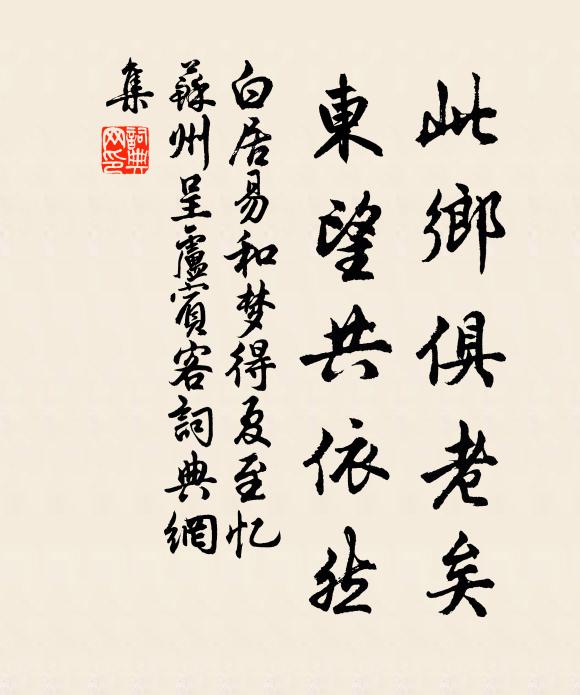 此鄉俱老矣
東望共依然
白居易和梦得夏至忆
蘇州呈盧賓客詞典網
集
詞典網印